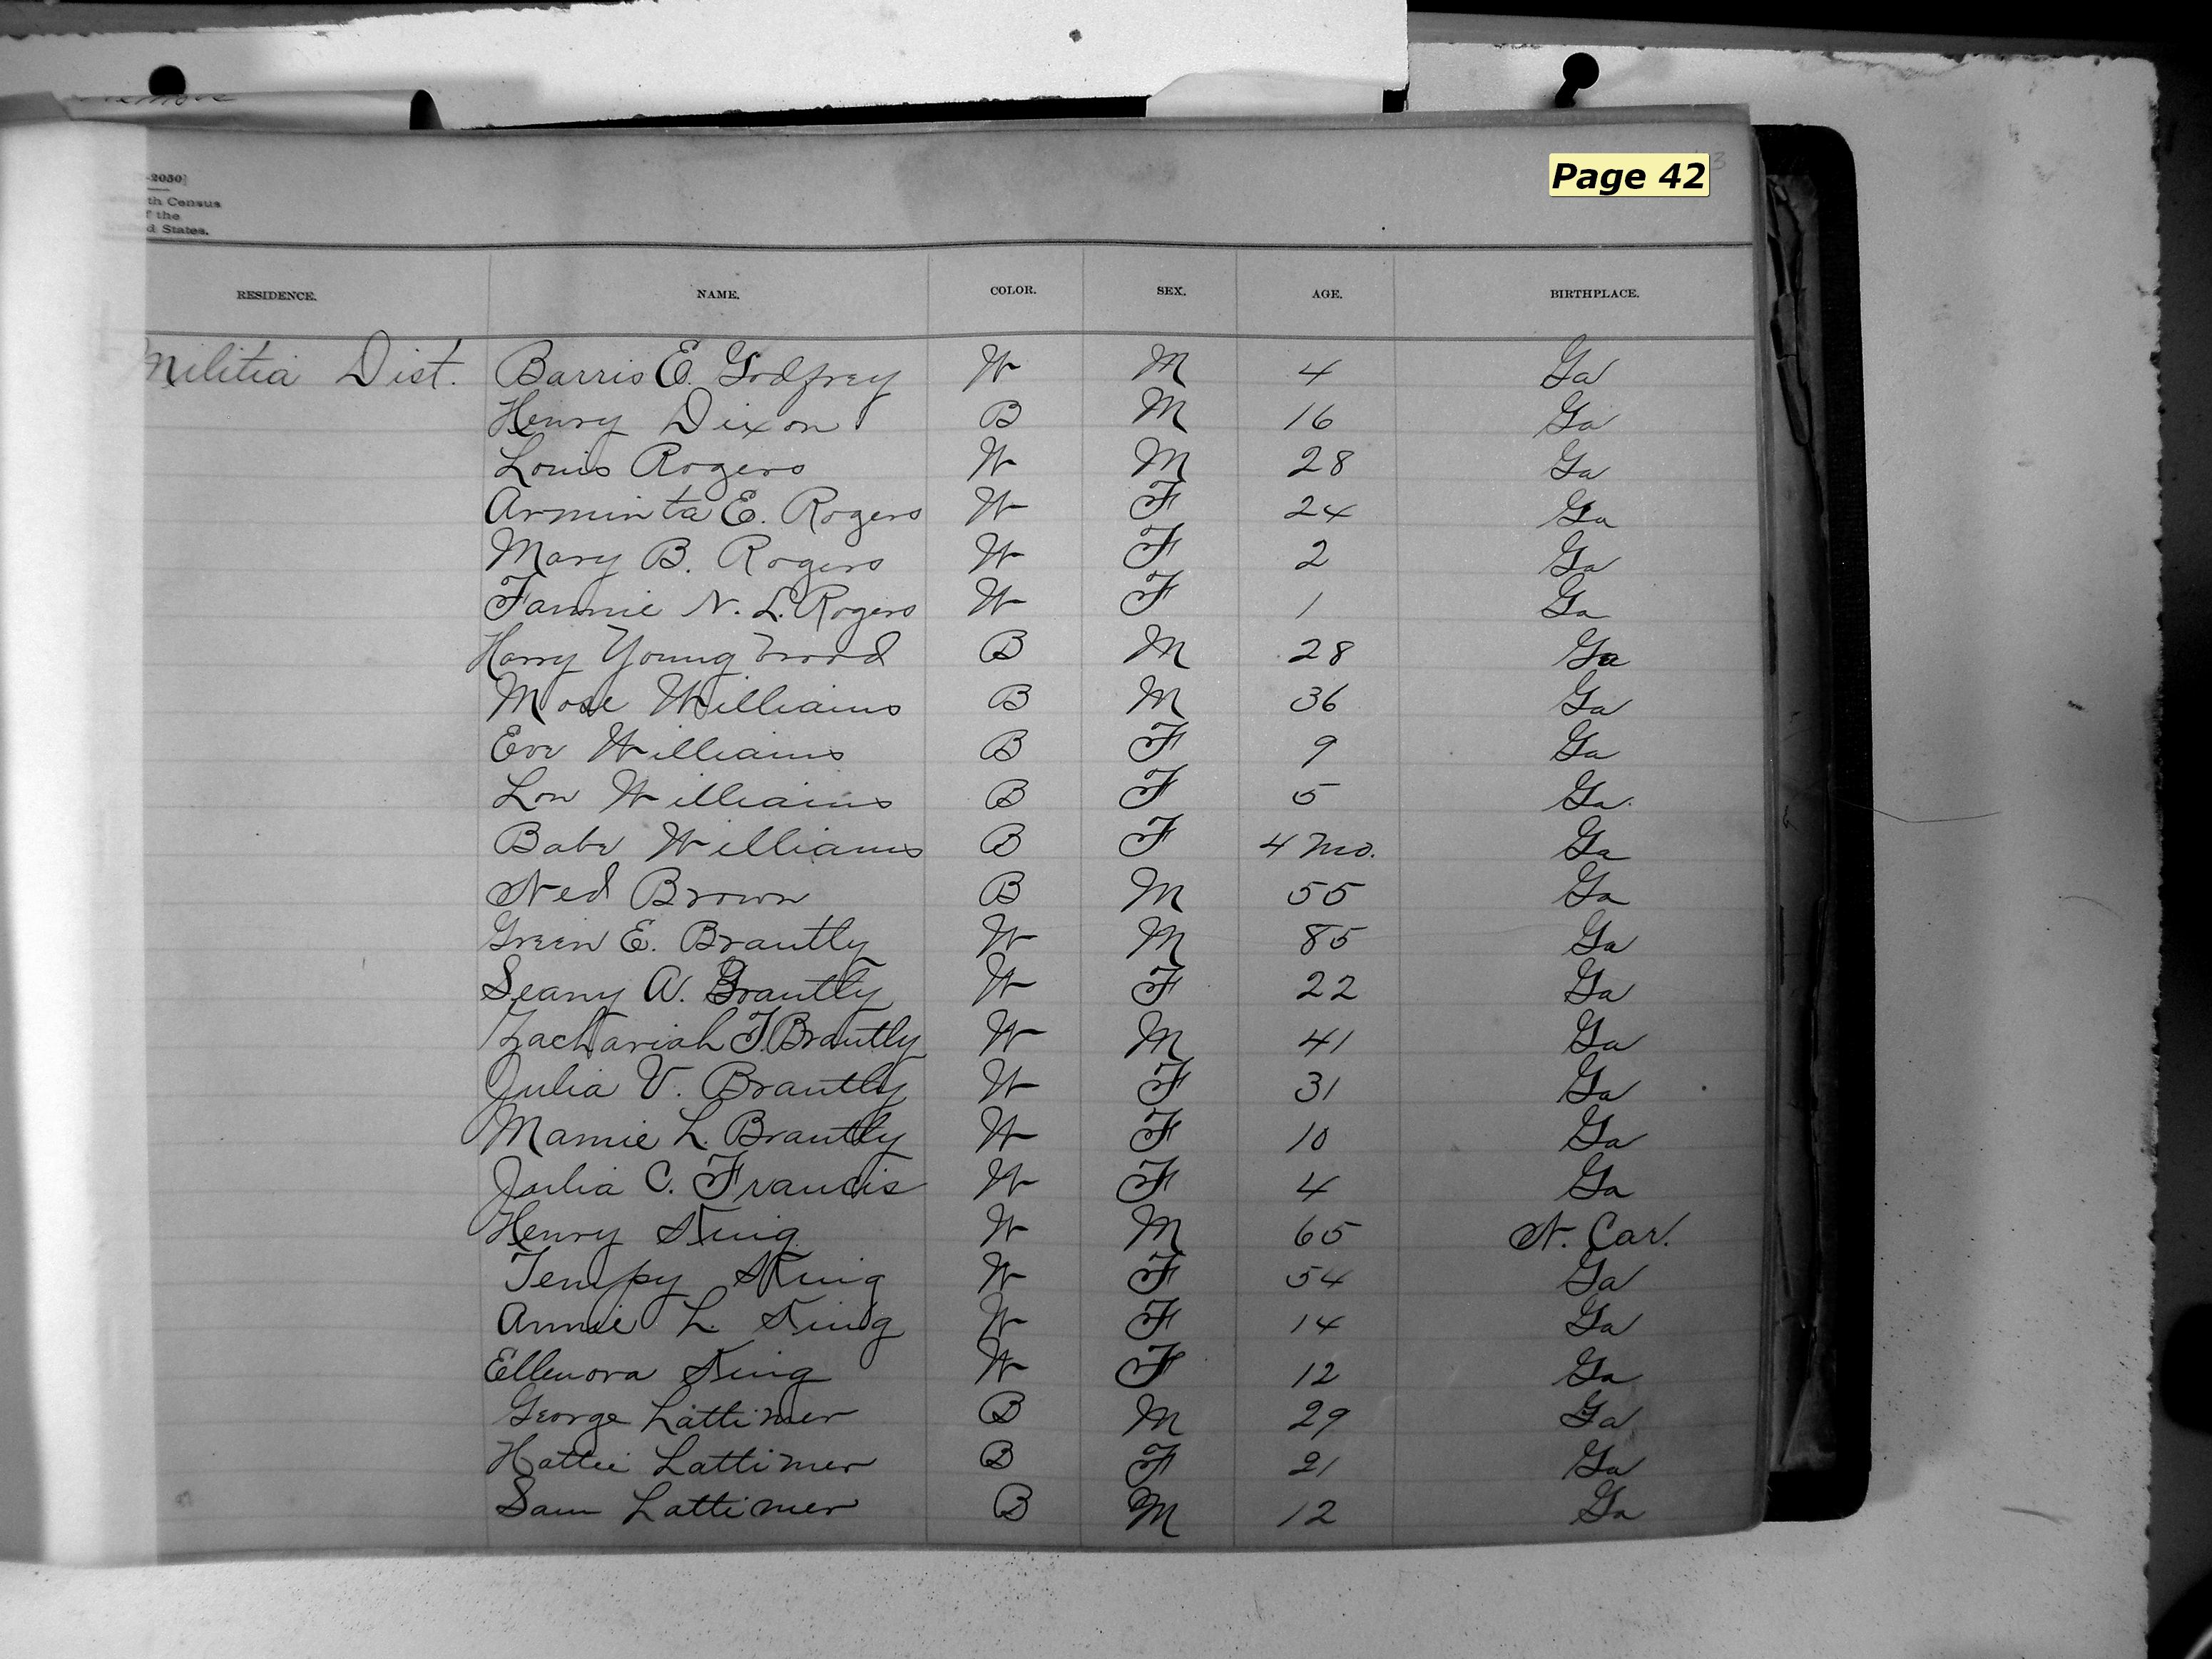 Page 42
-2050]
th Census
of the
United States.
RESIDENCE. NAME. COLOR. SEX. AGE. BIRTHPLACE.
Militia Dist. Barris E. Godfrey W M 4 Ga
Henry Dixon B M 16 Ga
Louis Rogers W M 28 Ga
Arminta E. Rogers W F 24 Ga
Mary B. Rogers W F 2 Ga
Fannie N. L. Rogers W F 1 Ga
Harry Youngblood B M 28 Ga
Mose Williams B M 36 Ga
Eve Williams B F 9 Ga
Lou Williams B F 5 Ga.
Babe Williams B F 4 mo. Ga
Ned Brown B M 55 Ga
Green E. Brantly W M 85 Ga
Seany A. Brantly W F 22 Ga
Zachariah T. Brantly W M 41 Ga
Julia V. Brantly W F 31 Ga
Mamie L. Brantly W F 10 Ga
Julia C. Francis W F 4 Ga
Henry King W M 65 N. Car.
Tempy King W F 54 Ga
Annie L. King W F 14 Ga
Ellenora King W F 12 Ga
George Lattimer B M 29 Ga
Hattie Lattimer B F 21 Ga
Sam Lattimer B M 12 Ga